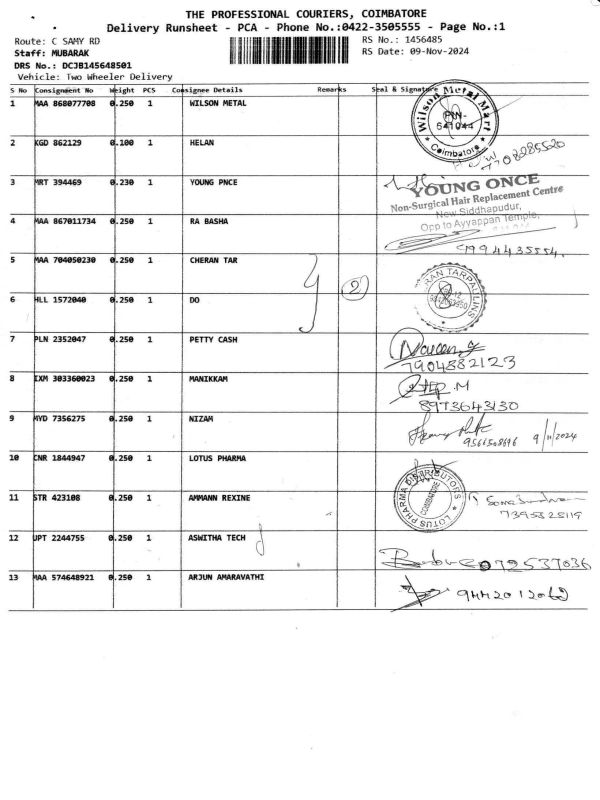 THE PROFESSIONAL COURIERS, COIMBATORE
Delivery Runsheet - PCA - Phone No.:0422-3505555 - Page No.:1
Route: C SAMY RD
RS No.: 1456485
Staff: MUBARAK
RS Date: 09-Nov-2024
DRS No.: DCJB145648501
Vehicle: Two Wheeler Delivery
S No Consignment No Weight PCS Consignee Details Remarks Seal & Signature
1 MAA 868077708 0.250 1 WILSON METAL
Wilson Metal Mart
PIN-
641044
Coimbatore
2 KGD 862129 0.100 1 HELAN
7708285520
3 MRT 394469 0.230 1 YOUNG PNCE
YOUNG ONCE
Non-Surgical Hair Replacement Centre
New Siddhapudur,
Opp to Ayyappan Temple,
4 MAA 867011734 0.250 1 RA BASHA
9994435554
5 MAA 704050230 0.250 1 CHERAN TAR
2
TARPAULINS
6 HLL 1572040 0.250 1 DO
7 PLN 2352047 0.250 1 PETTY CASH
7904882123
8 IXM 303360023 0.250 1 MANIKKAM
8973643130
9 MYD 7356275 0.250 1 NIZAM
9/11/2024
10 CNR 1844947 0.250 1 LOTUS PHARMA
LOTUS PHARMA DISTRIBUTORS
COIMBATORE
11 STR 423108 0.250 1 AMMANN REXINE
7395328119
12 UPT 2244755 0.250 1 ASWITHA TECH
9072537036
13 MAA 574648921 0.250 1 ARJUN AMARAVATHI